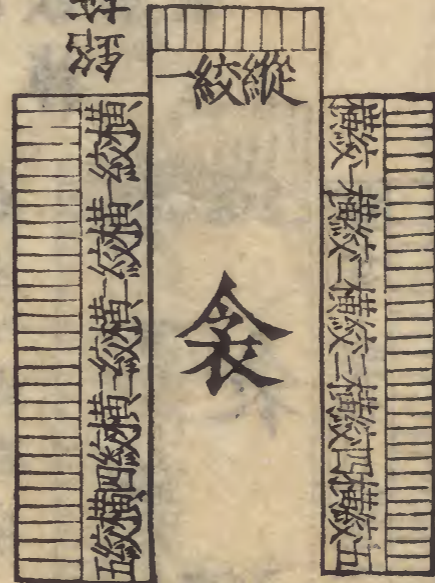 縱絞一
橫絞一橫絞二橫絞三橫絞四橫絞五
衾
橫絞一橫絞二橫絞三橫絞四橫絞五